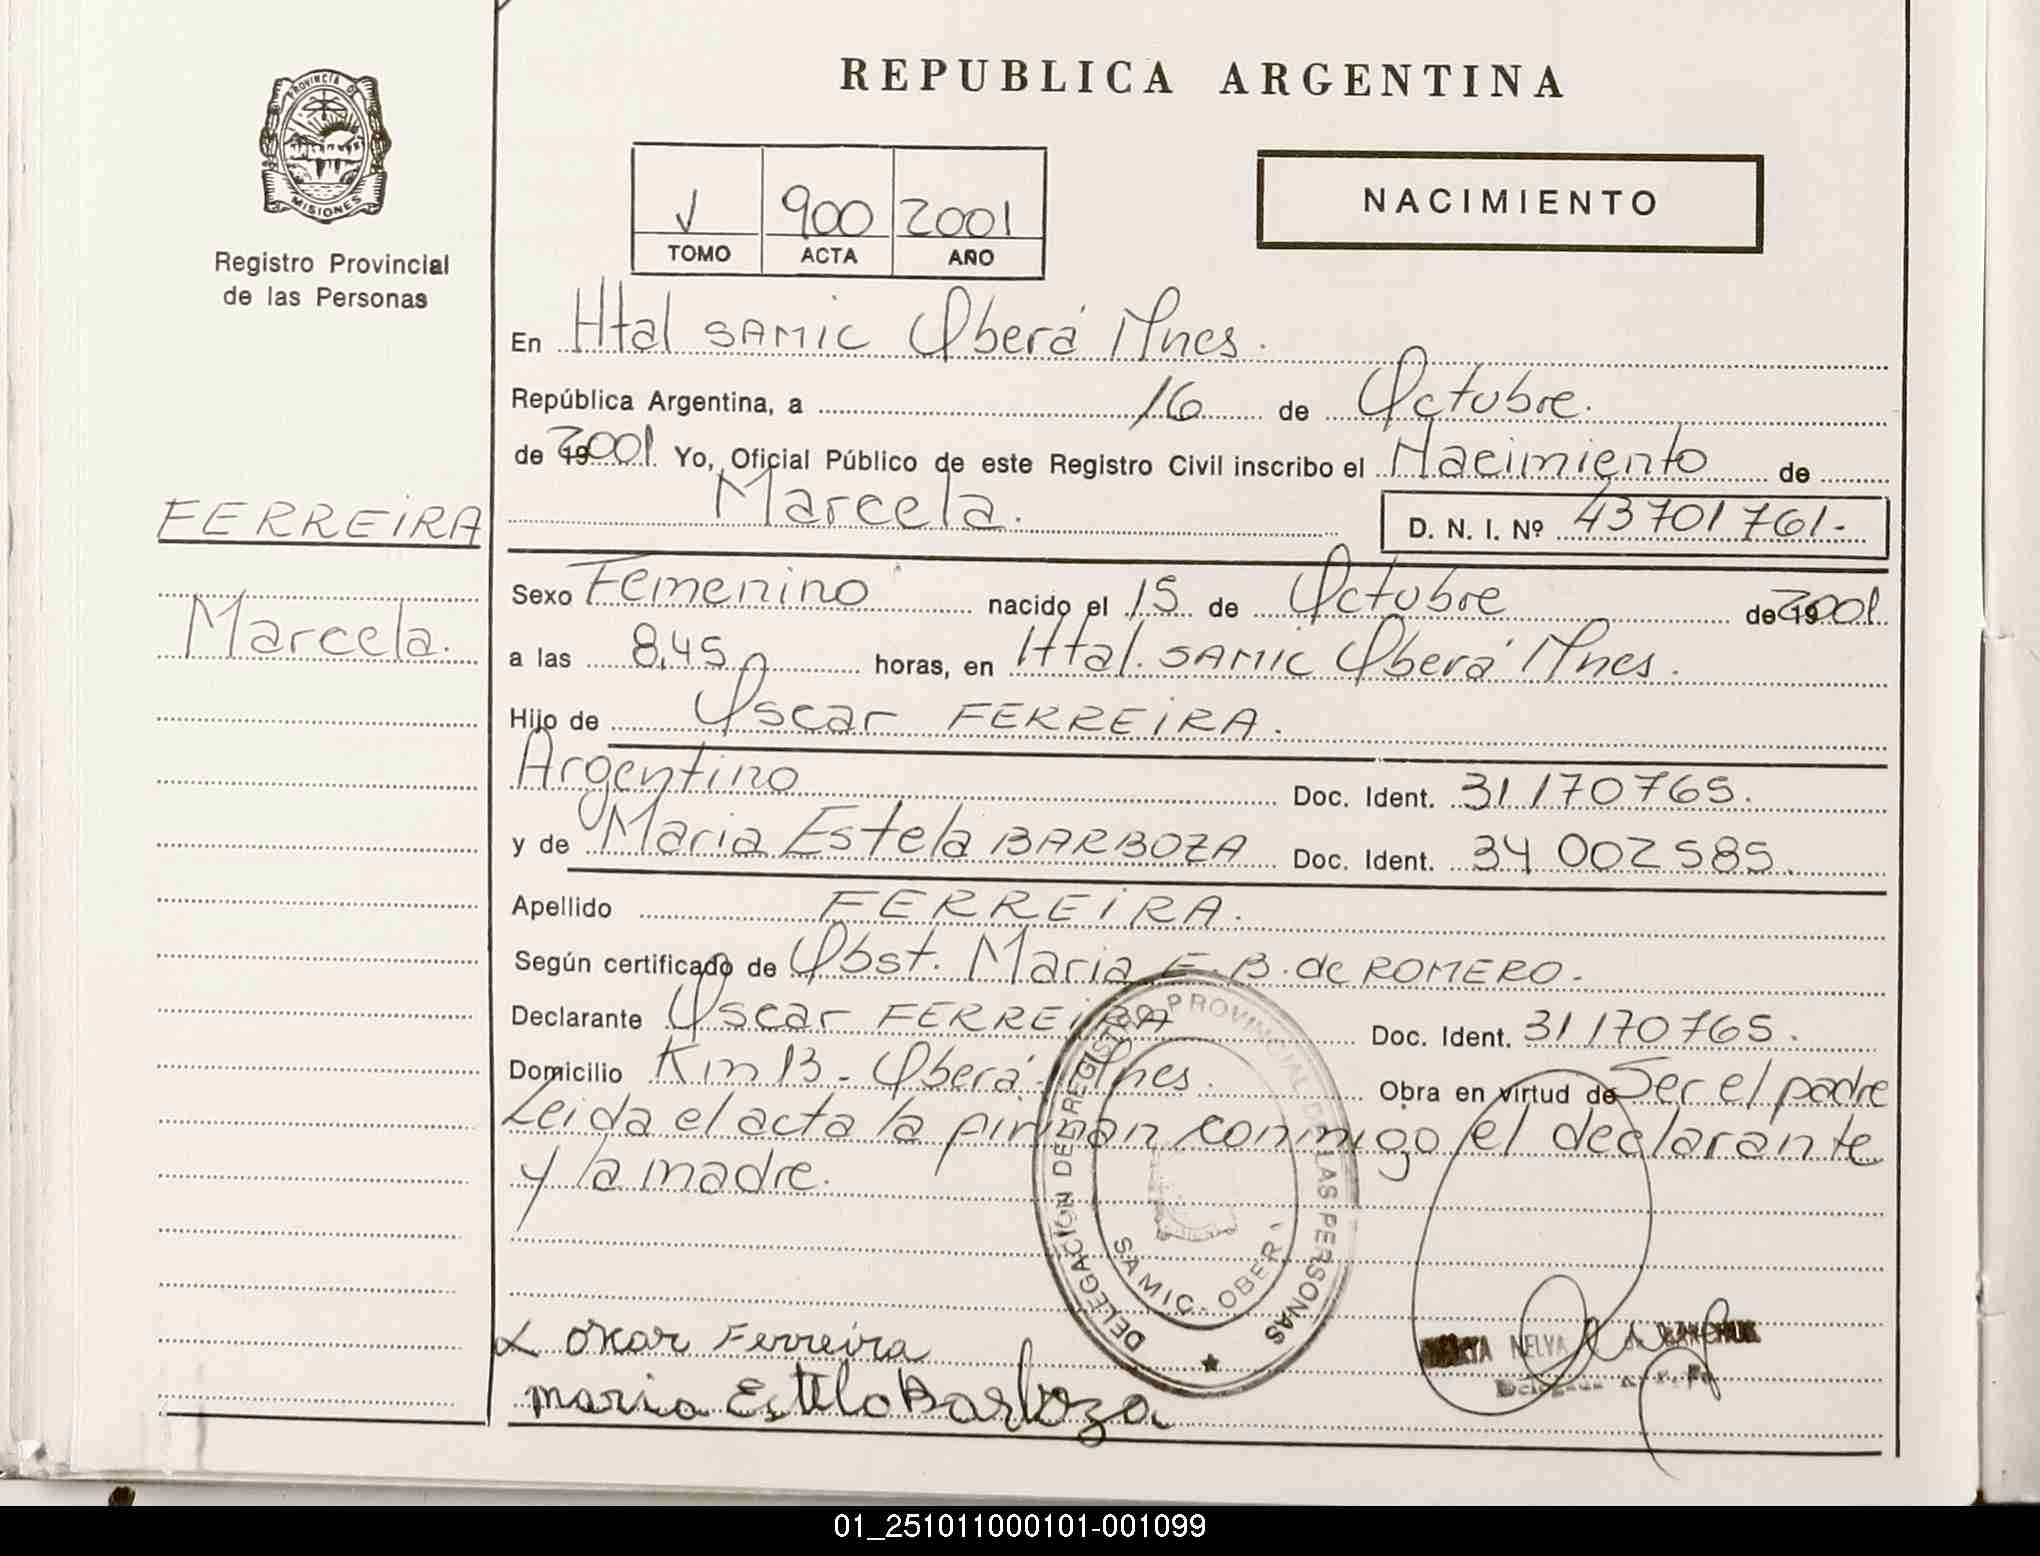 REPUBLICA ARGENTINA
PROVINCIA DE
MISIONES
Registro Provincial
de las Personas
√ 900 2001
TOMO ACTA AÑO
NACIMIENTO
En Htal SAMIC Oberá Mnes.
República Argentina, a 16 de Octubre.
de 2001. Yo, Oficial Público de este Registro Civil inscribo el Nacimiento de
Marcela. D. N. I. Nº 43701761-
FERREIRA
Marcela.
Sexo Femenino nacido el 15 de Octubre de 2001.
a las 8,45 horas, en Htal. SAMIC Oberá Mnes.
Hijo de Oscar FERREIRA.
Argentino Doc. Ident. 31170765.
y de Maria Estela BARBOZA Doc. Ident. 34 002585.
Apellido FERREIRA.
Según certificado de Obst. Maria E. B. de ROMERO.
Declarante Oscar FERREIRA Doc. Ident. 31170765.
Domicilio Km 13 - Oberá - Mnes. Obra en virtud de Ser el padre
Leida el acta la firman conmigo el declarante
y la madre.
DELEGACIÓN DEL REGISTRO PROVINCIAL DE LAS PERSONAS
SAMIC - OBERA
oscar Ferreira
maria Estela Barboza
NELYA
01_251011000101-001099